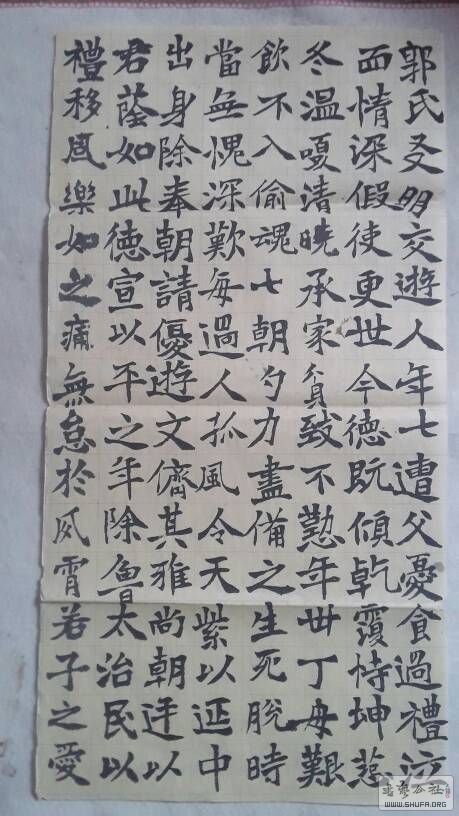 郭氏叉明交遊人年七遭父憂食過禮泣
面情深假使更世今德既傾乾覆恃坤慈
冬温嗄清曉承家貧致不懃年丗丁母艱
飲不入偷魂七朝勺力盡備之生死脫時
當無愧深歎每過人孤風令天紫以延中
出身除奉朝請優遊文儕其雅尚朝廷以
君蔭如此德宣以平之年除魯太治民以
禮移風樂如之痛無怠於夙霄若子之愛
书法公社
WWW.SHUFA.ORG